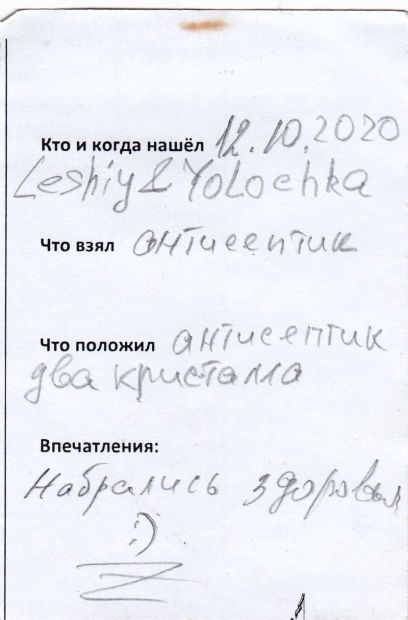 Кто и когда нашёл 12.10.2020
Leshiy & Yolochka
Что взял антисептик
Что положил антисептик
два кристалла
Впечатления:
Набрались здоровья
:)